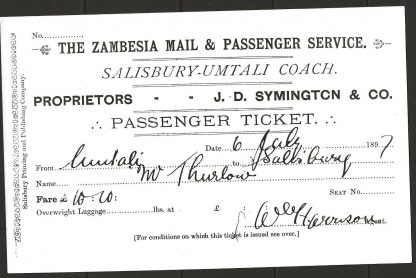 No.
THE ZAMBESIA MAIL & PASSENGER SERVICE.
SALISBURY-UMTALI COACH.
PROPRIETORS - - J. D. SYMINGTON & CO.
PASSENGER TICKET.
Date 6 July 1897
From Umtali to Salisbury
Name Mr Thurlow Seat No.
Fare £10.10:
Overweight Luggage lbs. at £
W Harrison
[For conditions on which this ticket is issued see over.]
Salisbury Printing and Publishing Company.